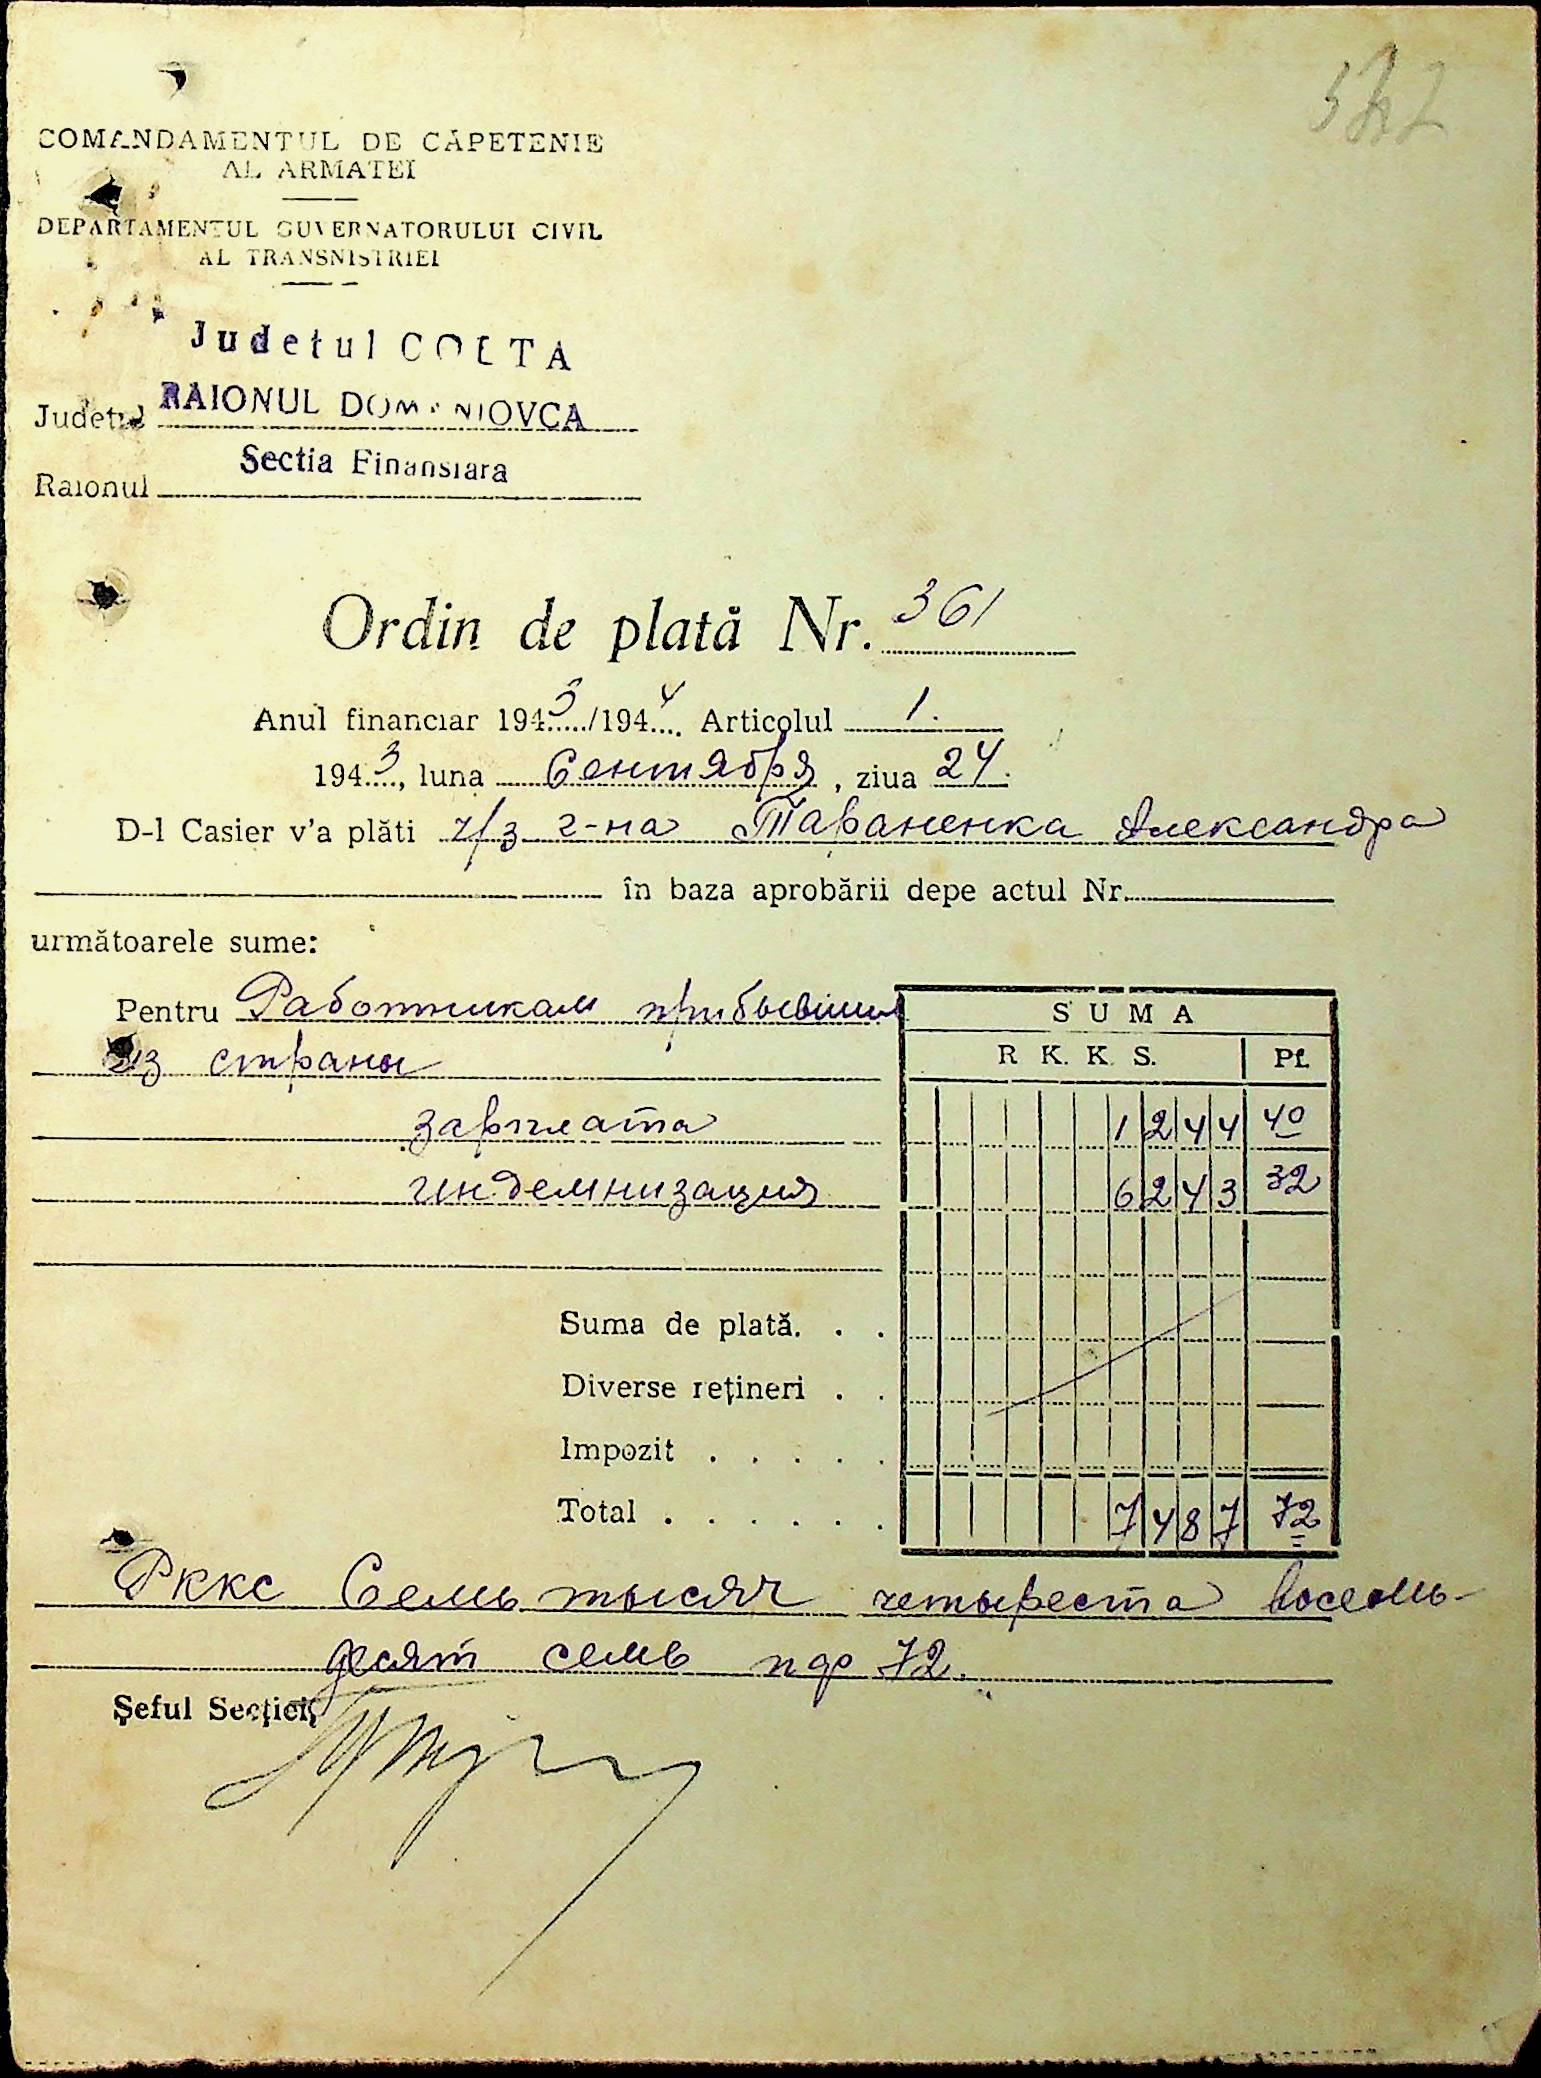 COMANDAMENTUL DE CĂPETENIE
AL ARMATEI
DEPARTAMENTUL GUVERNATORULUI CIVIL
AL TRANSNISTRIEI
Judetul COLTA
Judetul RAIONUL DOMANIOVCA
Sectia Finansiara
Raionul
Ordin de plată Nr. 361
Anul financiar 1943/1944 Articolul 1.
1943, luna Сентября, ziua 24.
D-l Casier v'a plăti ч/з г-на Тараненка Александра
în baza aprobării depe actul Nr.
următoarele sume:
Pentru Работникам прибывшим
из страны
SUMA
R K. K S. Pf.
зарплата 1244 40
индемнизация 6243 32
Suma de plată. . .
Diverse rețineri . .
Impozit . . . . .
Total . . . . . . . 7487 72
Рккс Семь тысяч четыреста восемь-
десят семь пф 72.
Șeful Secției,